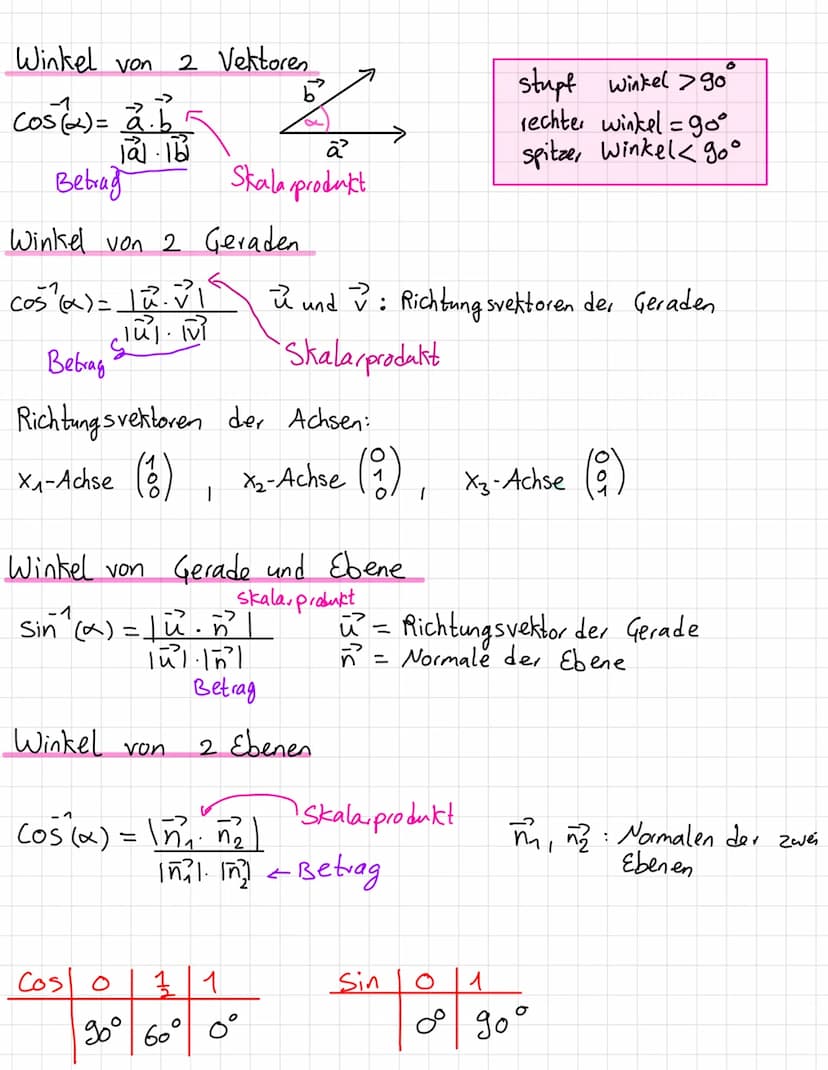 Winkel von 2 Vektoren
cos⁻¹(α) = a⃗ · b⃗ / |a⃗| · |b⃗|
Betrag
Skalarprodukt
b⃗
α
a⃗
stupf winkel > 90°
rechter winkel = 90°
spitzer Winkel < 90°
Winkel von 2 Geraden
cos⁻¹(α) = |u⃗ · v⃗| / |u⃗| · |v⃗|
u⃗ und v⃗ : Richtungsvektoren der Geraden
Betrag
Skalarprodukt
Richtungsvektoren der Achsen:
x₁-Achse (1 0 0) , x₂-Achse (0 1 0) , x₃-Achse (0 0 1)
Winkel von Gerade und Ebene
Skalarprodukt
sin⁻¹(α) = |u⃗ · n⃗| / |u⃗| · |n⃗|
u⃗ = Richtungsvektor der Gerade
n⃗ = Normale der Ebene
Betrag
Winkel von 2 Ebenen
Skalarprodukt
cos⁻¹(α) = |n⃗₁ · n⃗₂| / |n⃗₁| · |n⃗₂|
← Betrag
n⃗₁, n⃗₂ : Normalen der zwei
Ebenen
Cos | 0 | 1/2 | 1
90° | 60° | 0°
Sin | 0 | 1
0° | 90°